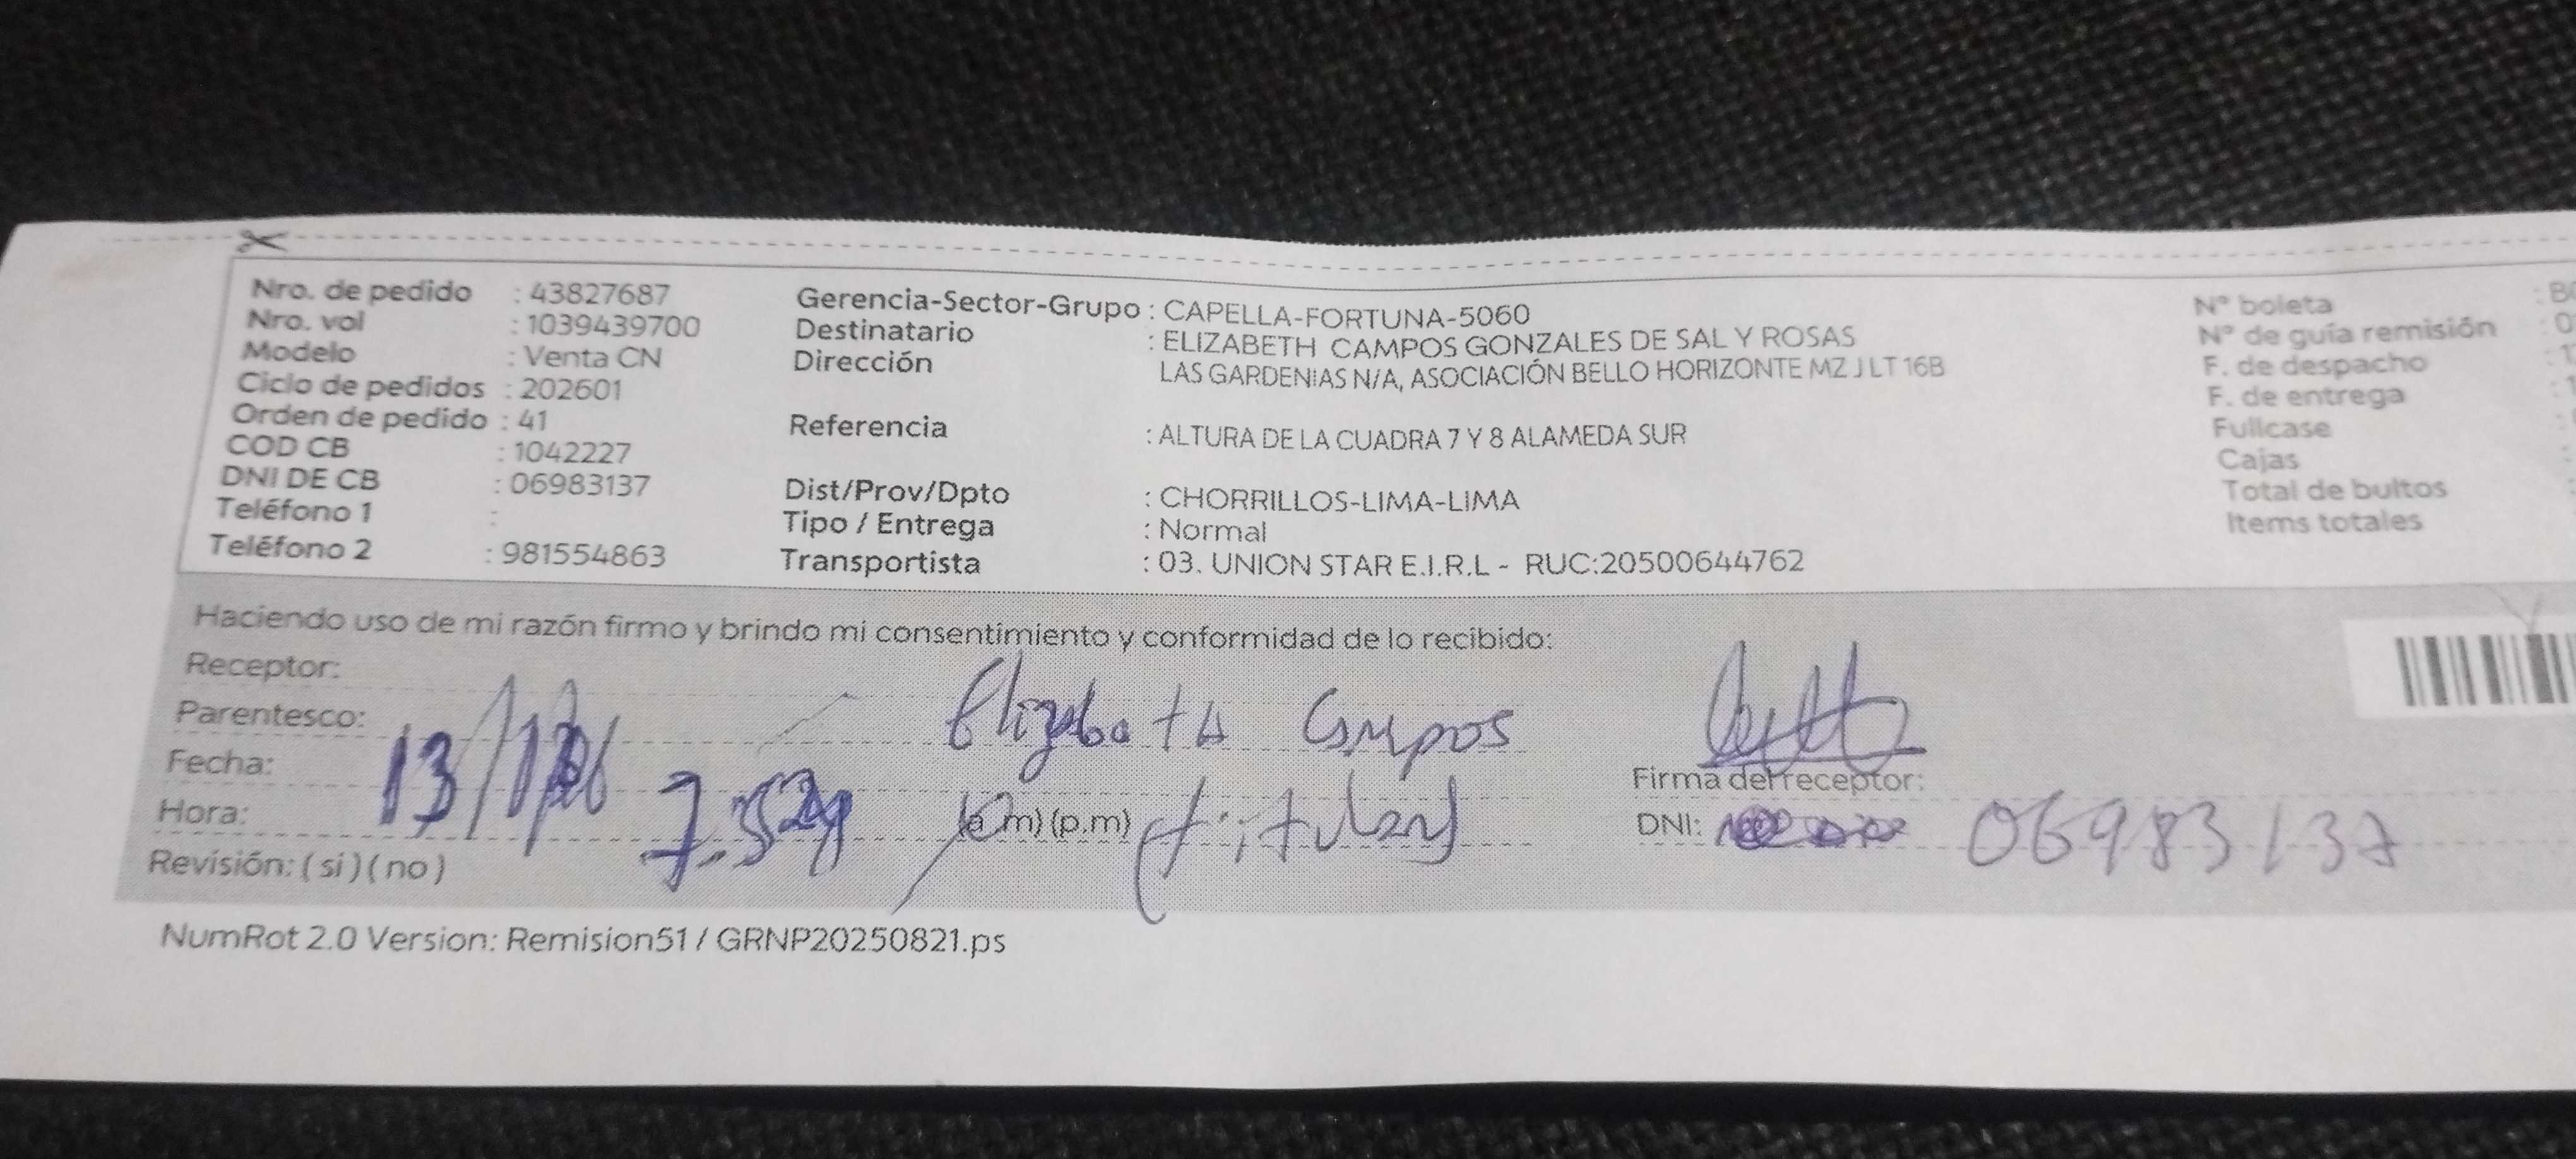 Nro. de pedido : 43827687
Nro. vol : 1039439700
Modelo : Venta CN
Ciclo de pedidos : 202601
Orden de pedido : 41
COD CB : 1042227
DNI DE CB : 06983137
Teléfono 1 :
Teléfono 2 : 981554863
Gerencia-Sector-Grupo : CAPELLA-FORTUNA-5060
Destinatario : ELIZABETH CAMPOS GONZALES DE SAL Y ROSAS
Dirección LAS GARDENIAS N/A, ASOCIACIÓN BELLO HORIZONTE MZ J LT 16B
Referencia : ALTURA DE LA CUADRA 7 Y 8 ALAMEDA SUR
Dist/Prov/Dpto : CHORRILLOS-LIMA-LIMA
Tipo / Entrega : Normal
Transportista : 03. UNION STAR E.I.R.L - RUC:20500644762
N° boleta :
N° de guía remisión :
F. de despacho :
F. de entrega :
Fullcase :
Cajas :
Total de bultos :
Items totales
Haciendo uso de mi razón firmo y brindo mi consentimiento y conformidad de lo recibido:
Receptor:
Parentesco: Elizabeth Campos
Fecha: 13/1/26
Hora: (a m) (p.m) (titular)
Revisión: ( si ) ( no )
Firma del receptor:
DNI: 06983137
NumRot 2.0 Version: Remision51 / GRNP20250821.ps